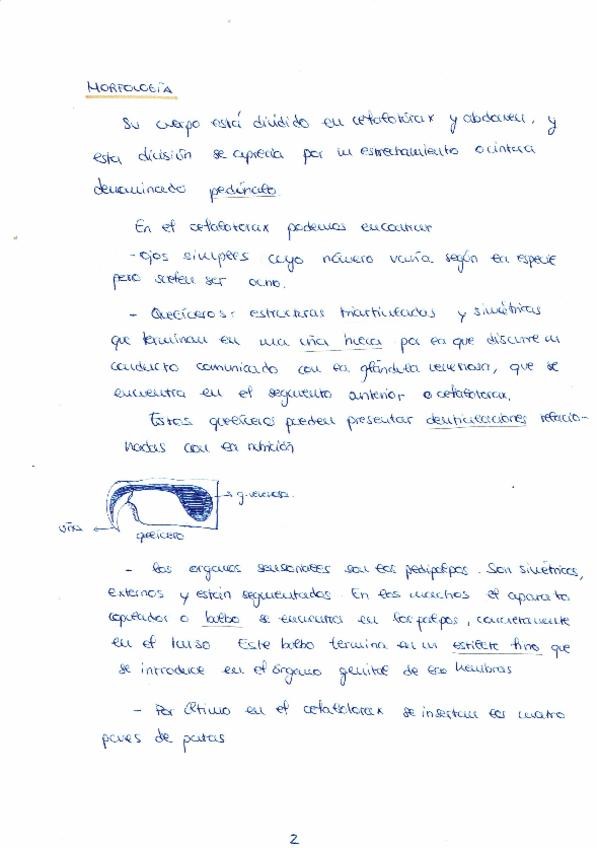 MORFOLOGÍA
Su cuerpo está dividido en cefalotórax y abdomen, y
esta división se aprecia por un estrechamiento o cintura
denominado pedúnculo.
En el cefalotorax podemos encontrar
- Ojos simples cuyo número varía según la especie
pero suelen ser ocho.
- Quelíceros: estructuras triarticuladas y simétricas
que terminan en una uña hueca por la que discurre un
conducto comunicado con la glándula venenosa, que se
encuentra en el segmento anterior o cefalotorax.
Estos quelíceros pueden presentar denticulaciones relacio-
nadas con la nutrición
→ g. venenosa.
uña ←
quelícero
- Los organos sensoriales son los pedipalpos. Son simétricos,
externos y están segmentados. En los machos el aparato
copulador o bulbo se encuentra en los palpos, concretamente
en el tarso. Este bulbo termina en un estilete fino que
se introduce en el órgano genital de las hembras
- Por último en el cefalotorax se insertan los cuatro
pares de patas
2